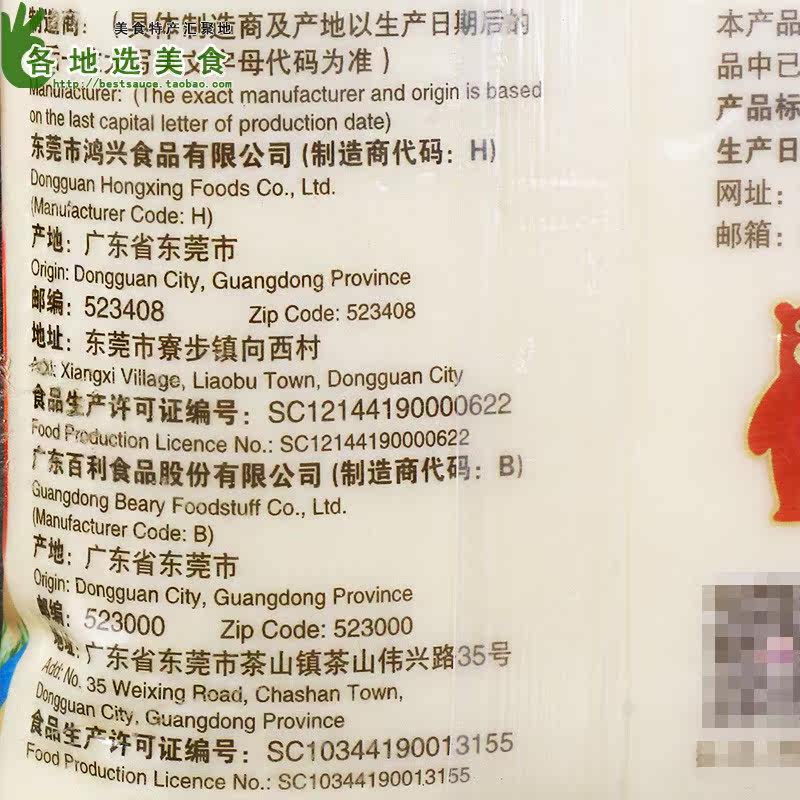 美食特产汇聚地
各地选美食
http://bestsauce.taobao.com
制造商：（具体制造商及产地以生产日期后的
文字母代码为准）
Manufacturer: (The exact manufacturer and origin is based
on the last capital letter of production date)
东莞市鸿兴食品有限公司 (制造商代码：H)
Dongguan Hongxing Foods Co., Ltd.
(Manufacturer Code: H)
产地：广东省东莞市
Origin: Dongguan City, Guangdong Province
邮编：523408 Zip Code: 523408
地址：东莞市寮步镇向西村
Add: Xiangxi Village, Liaobu Town, Dongguan City
食品生产许可证编号：SC12144190000622
Food Production Licence No.: SC12144190000622
广东百利食品股份有限公司 (制造商代码：B)
Guangdong Beary Foodstuff Co., Ltd.
(Manufacturer Code: B)
产地：广东省东莞市
Origin: Dongguan City, Guangdong Province
邮编：523000 Zip Code: 523000
地址：广东省东莞市茶山镇茶山伟兴路35号
Add: No. 35 Weixing Road, Chashan Town,
Dongguan City, Guangdong Province
食品生产许可证编号：SC10344190013155
Food Production Licence No.: SC10344190013155
本产品
品中已
产品标
生产日
网址：
邮箱：